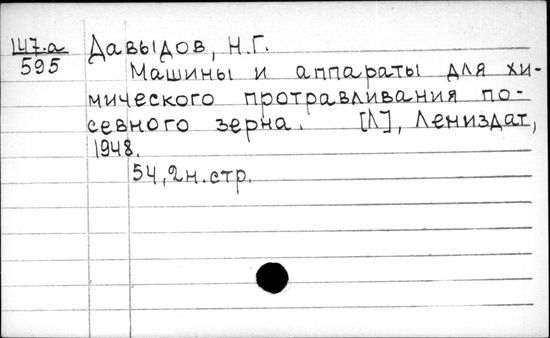 Ш47.а
595
Давыдов, Н.Г.
Машины и аппараты для хи-
мического протравливания по-
севного зерна. [Л], Лениздат,
1948.
54,2н.стр.